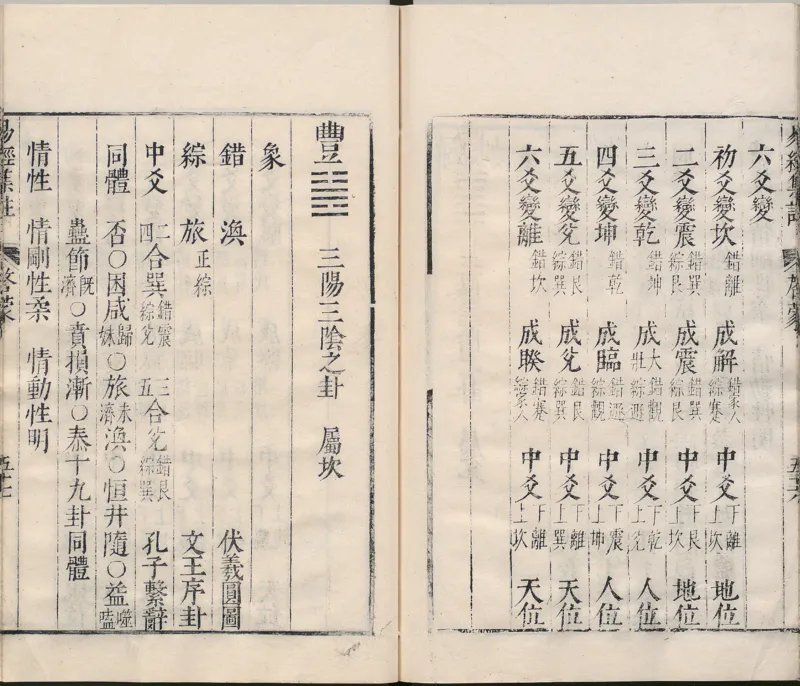 六爻變
初爻變坎 錯離 成解 錯家人綜蹇 中爻 下離上坎 地位
二爻變震 錯巽綜艮 成震 錯巽綜艮 中爻 下艮上坎 地位
三爻變乾 錯坤 成大壯 錯觀綜遯 中爻 下乾上兌 人位
四爻變坤 錯乾 成臨 錯遯綜觀 中爻 下震上坤 人位
五爻變兌 錯艮綜巽 成兌 錯艮綜巽 中爻 下離上巽 天位
六爻變離 錯坎 成睽 錯蹇綜家人 中爻 下離上坎 天位
豐 ䷶ 三陽三陰之卦 屬坎
象
錯 渙 伏羲圓圖
綜 旅 正綜 文王序卦
中爻 二四合巽 錯震綜兌 三五合兌 錯艮綜巽 孔子繫辭
同體 否○困咸歸妹○旅未濟渙○恒井隨○益噬嗑
蠱節既濟○賁損漸○泰十九卦同體
情性 情剛性柔 情動性明